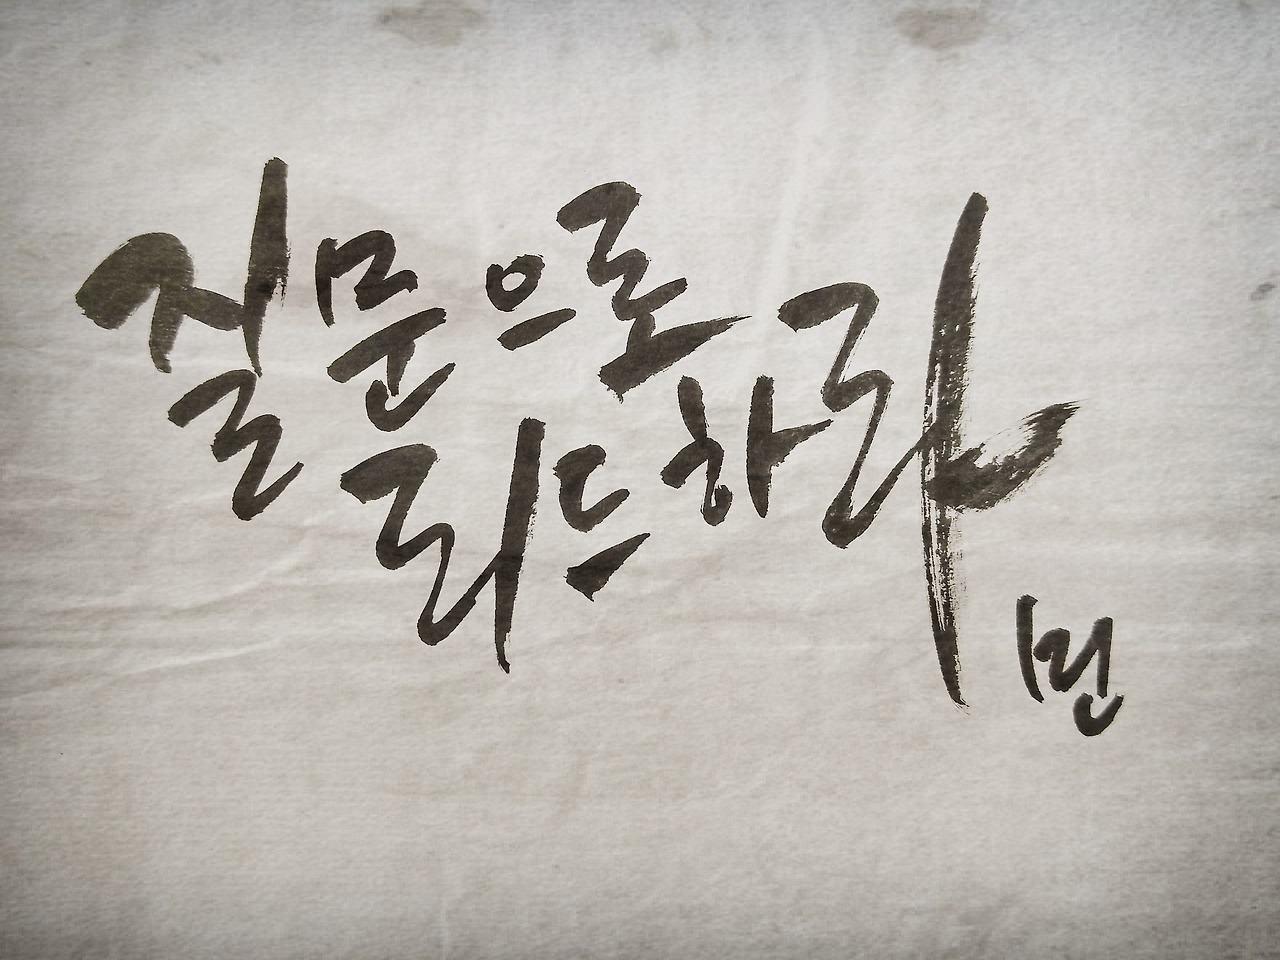 질문으로
리드하라